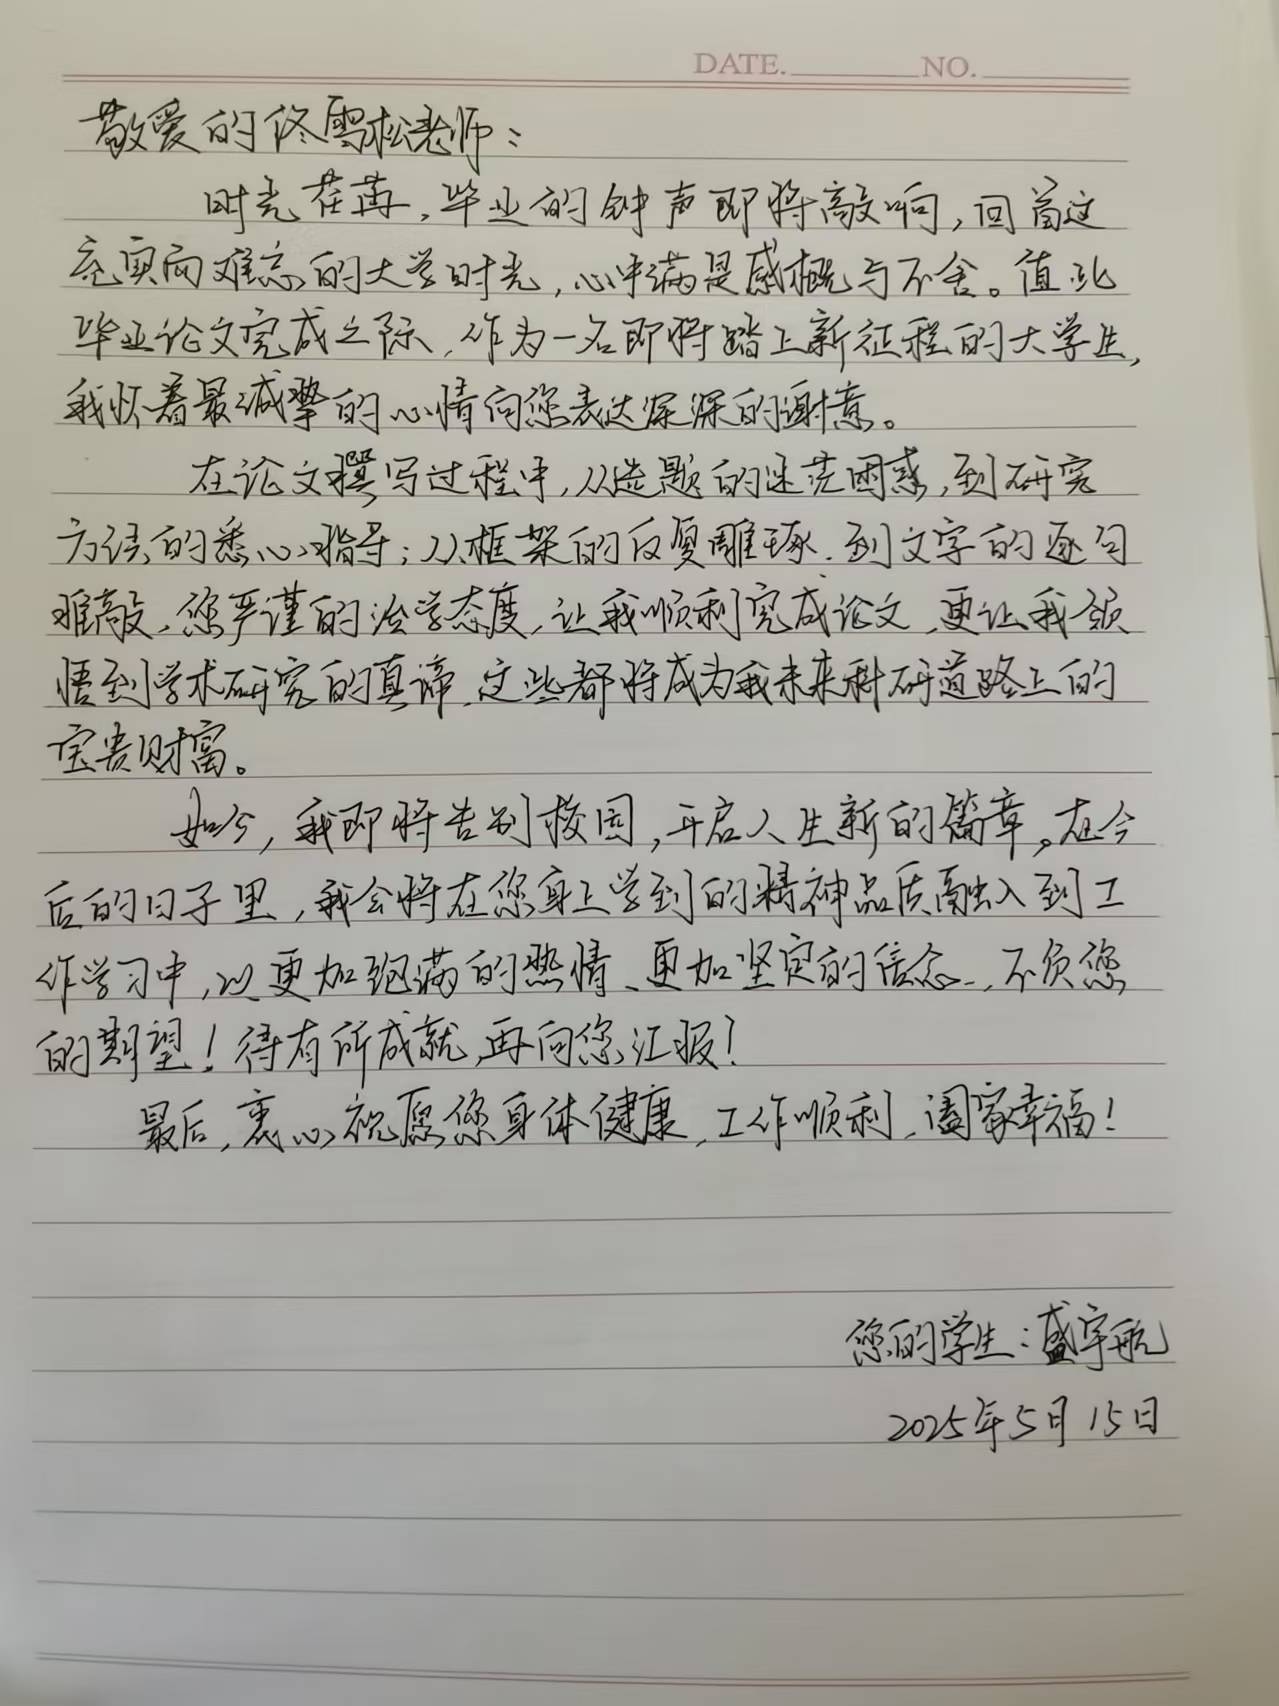 DATE.________NO.________
敬爱的佟雪松老师：
时光荏苒，毕业的钟声即将敲响，回首这
充实而难忘的大学时光，心中满是感概与不舍。值此
毕业论文完成之际，作为一名即将踏上新征程的大学生，
我怀着最诚挚的心情向您表达深深的谢意。
在论文撰写过程中，从选题的迷茫困惑，到研究
方法的悉心指导；从框架的反复雕琢，到文字的逐句
推敲，您严谨的治学态度，让我顺利完成论文，更让我领
悟到学术研究的真谛，这些都将成为我未来科研道路上的
宝贵财富。
如今，我即将告别校园，开启人生新的篇章。在今
后的日子里，我会将在您身上学到的精神品质融入到工
作学习中，以更加饱满的热情、更加坚定的信念，不负您
的期望！待有所成就，再向您汇报！
最后，衷心祝愿您身体健康，工作顺利，阖家幸福！
您的学生：盛宇航
2025年5月15日